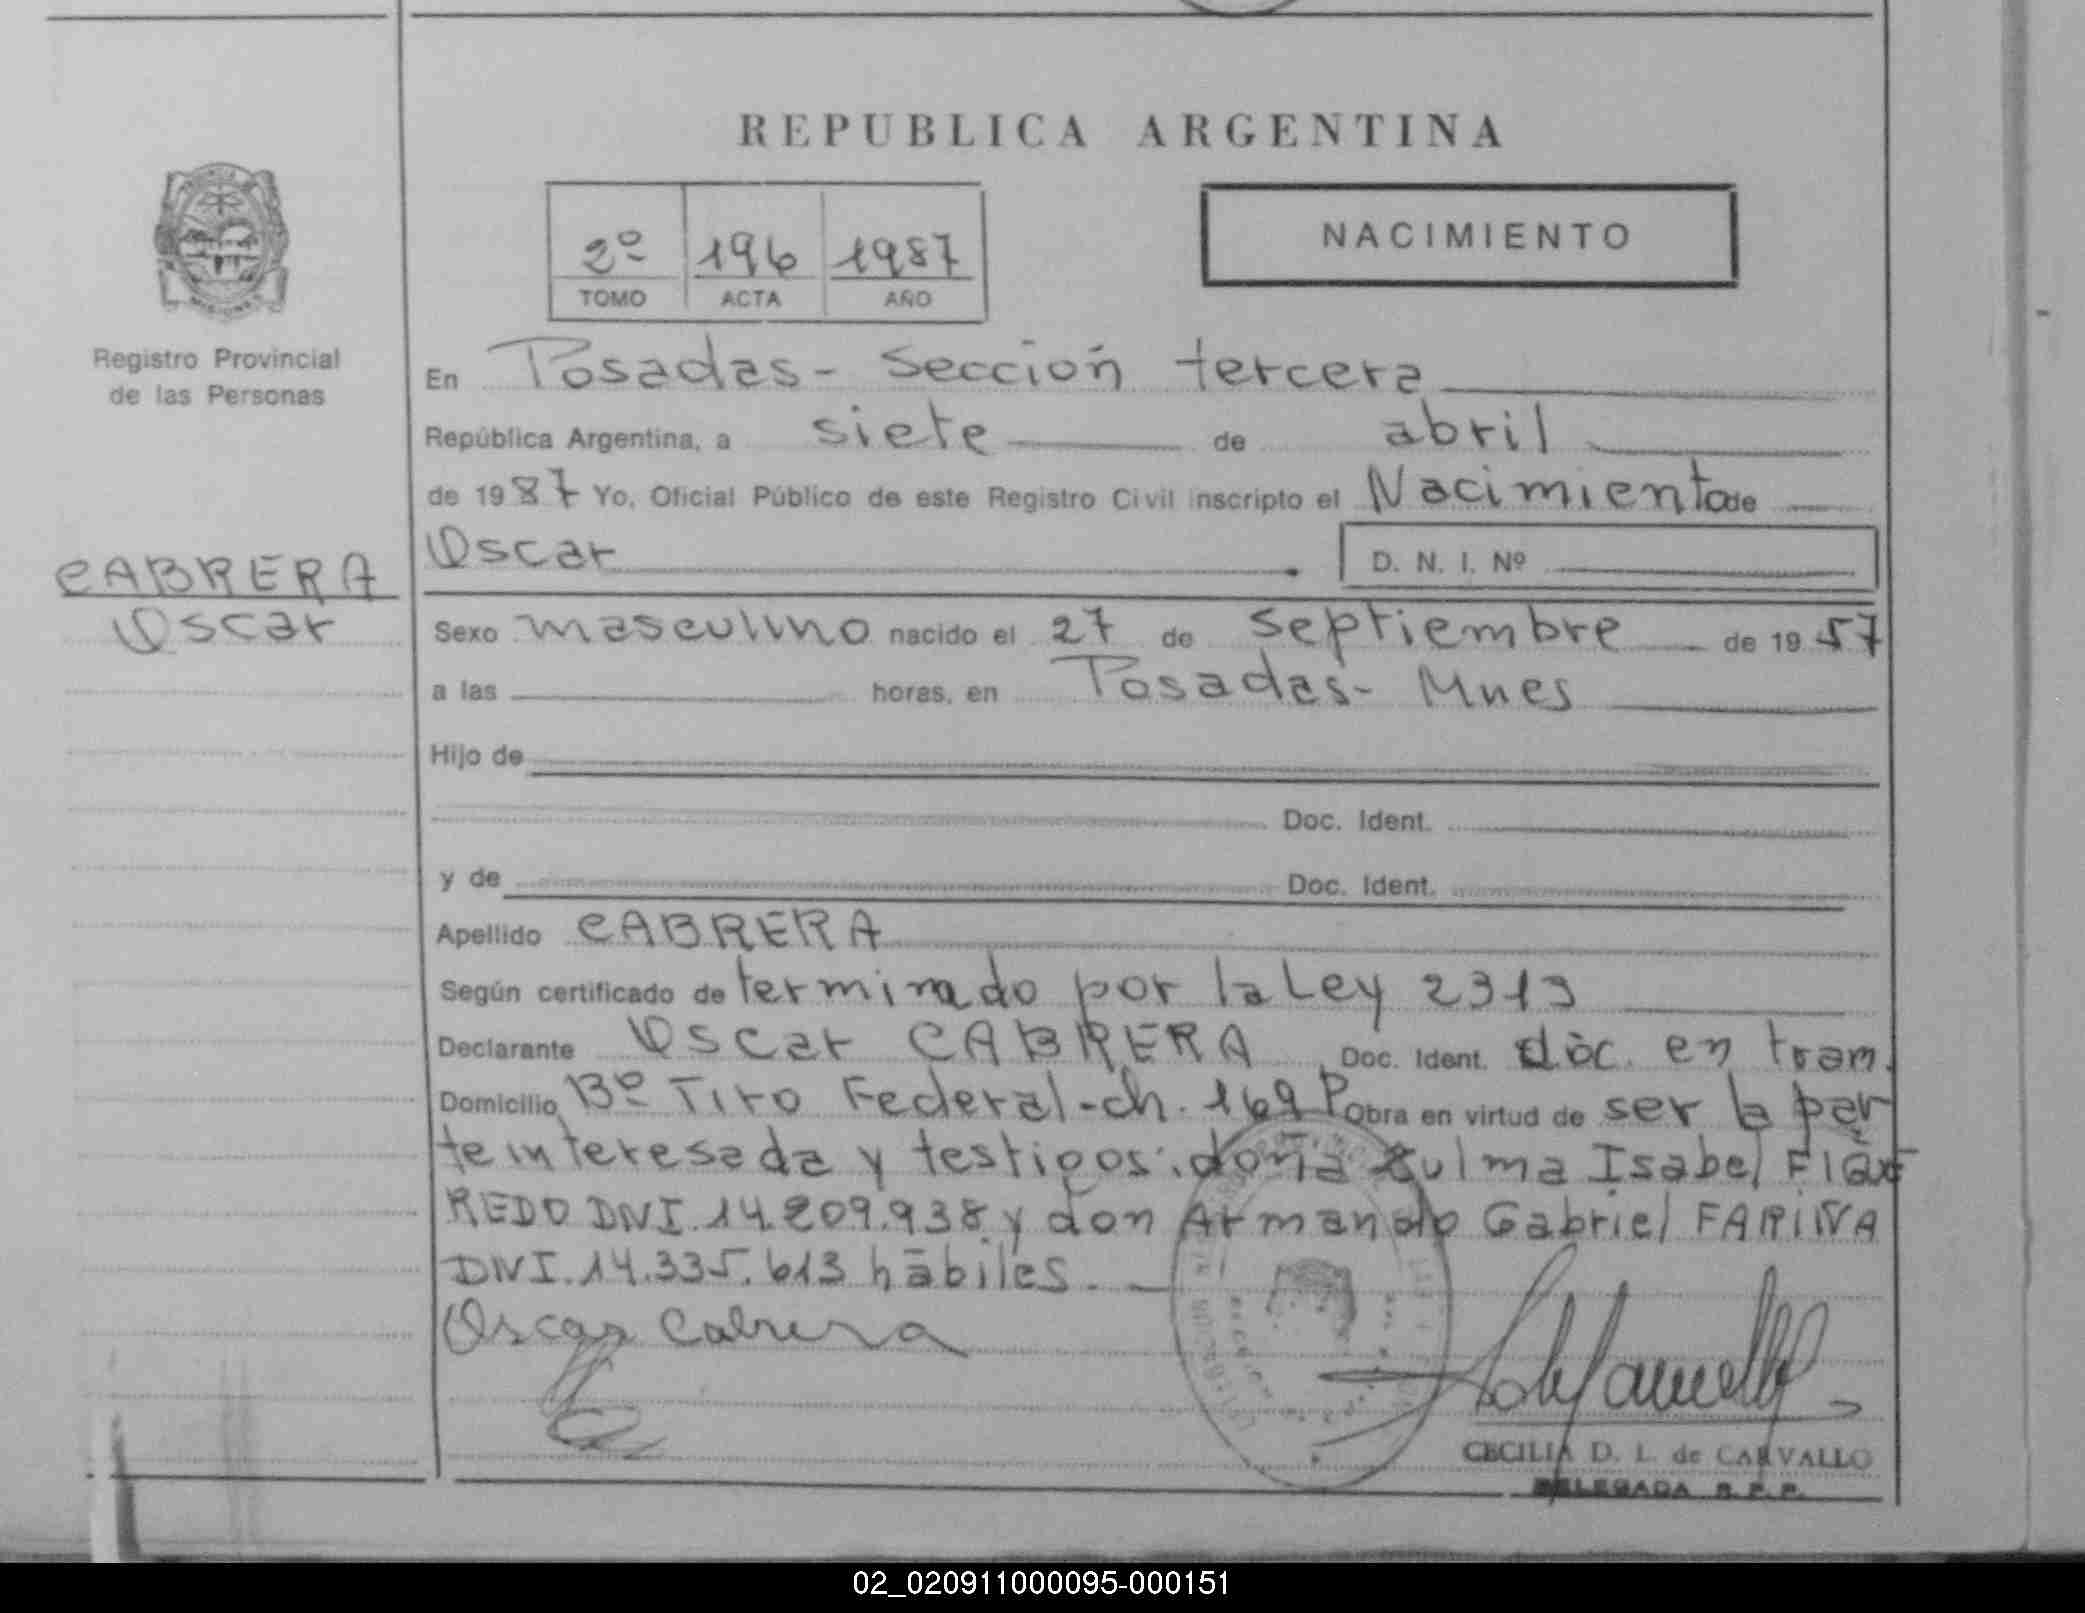 REPUBLICA ARGENTINA
2º 196 1987
TOMO ACTA AÑO
NACIMIENTO
Registro Provincial
de las Personas
CABRERA
Oscar
En Posadas - Sección tercera
República Argentina, a siete de abril
de 1987 Yo, Oficial Público de este Registro Civil inscripto el Nacimiento de
Oscar D. N. I. Nº
Sexo masculino nacido el 27 de septiembre de 1957
a las horas, en Posadas - Mnes
Hijo de
Doc. Ident.
y de Doc. Ident.
Apellido CABRERA
Según certificado de terminado por la Ley 2313
Declarante Oscar CABRERA Doc. Ident. doc. en tram.
Domicilio Bº Tiro Federal - ch. 169 P Obra en virtud de ser la par
te interesada y testigos: doña Zulma Isabel
REDO DNI. 14.209.938 y don Armando Gabriel FARIÑA
DNI. 14.335.613 hábiles.
Oscar Cabrera
CECILIA D. L. de CARVALLO
DELEGADA R. P. P.
02_020911000095-000151